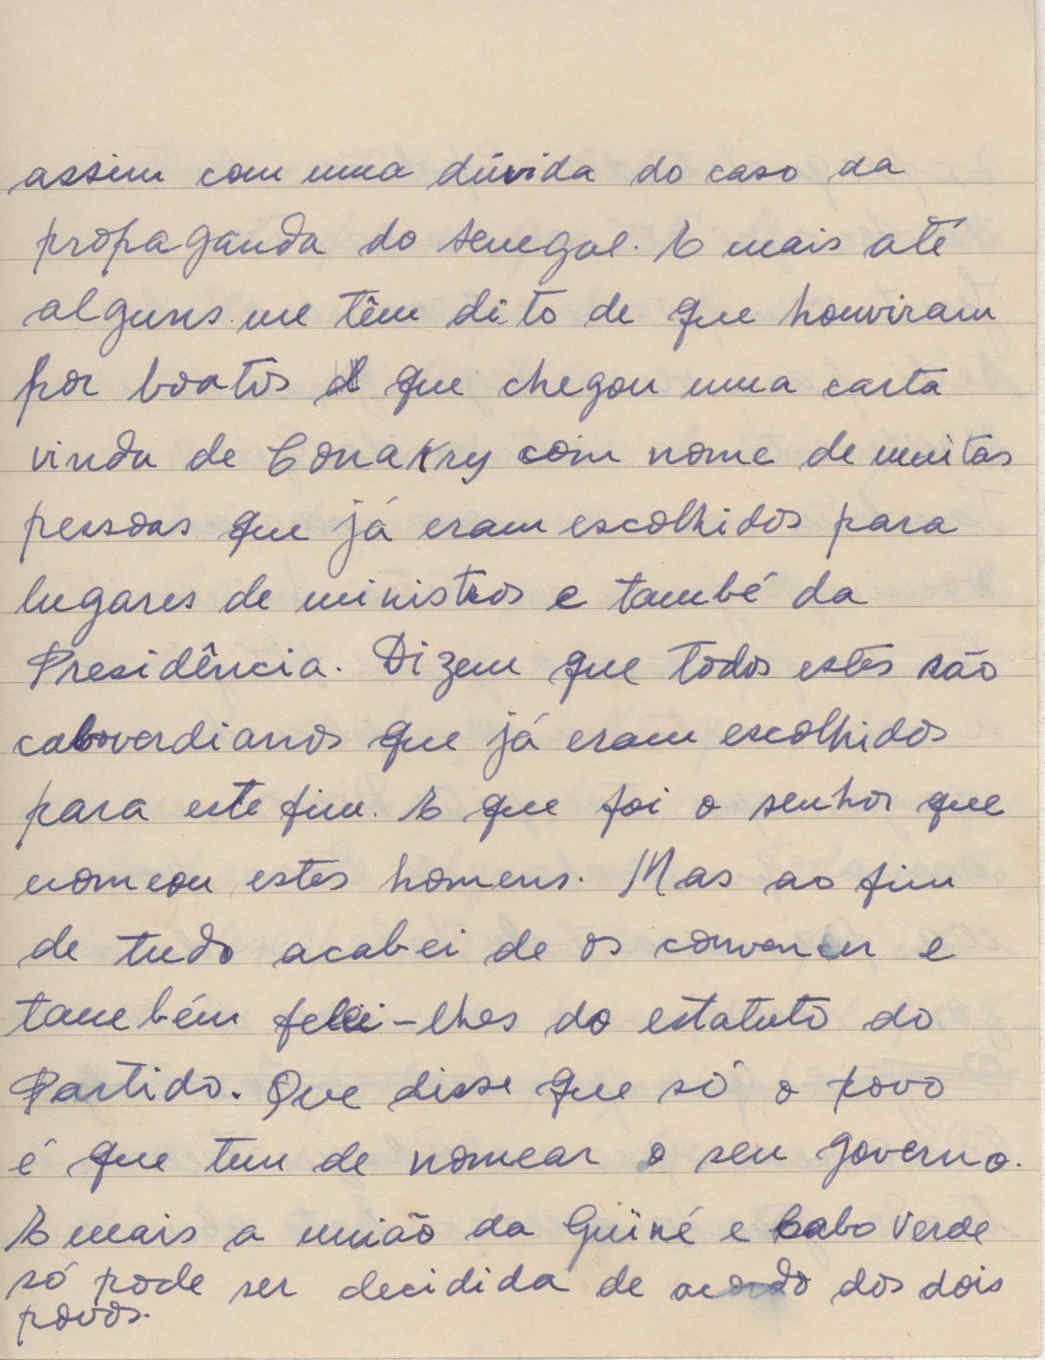 assim com uma dúvida do caso da
propaganda do Senegal. E mais até
alguns me têm dito de que houviram
por boatos que chegou uma carta
vindu de Conakry com nome de muitas
pessoas que já eram escolhidos para
lugares de ministros e també da
Presidência. Dizem que todos estes são
caboverdianos que já eram escolhidos
para este fim. E que foi o senhor que
nomeou estes homens. Mas ao fim
de tudo acabei de os convencer e
também falei-lhes do estatuto do
Partido. Que disse que só o povo
é que tem de nomear o seu governo.
E mais a união da Güiné e Cabo Verde
só pode ser decidida de acordo dos dois
povos.